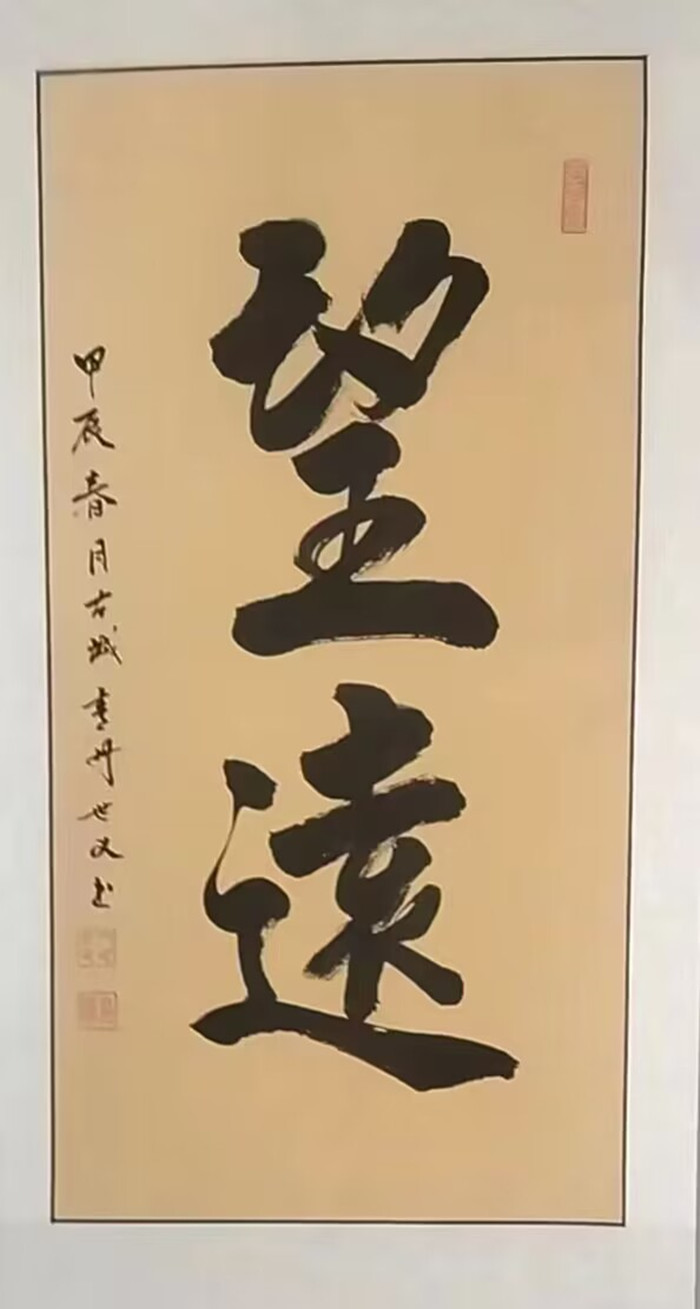 望遠
甲辰春月古城 世文书